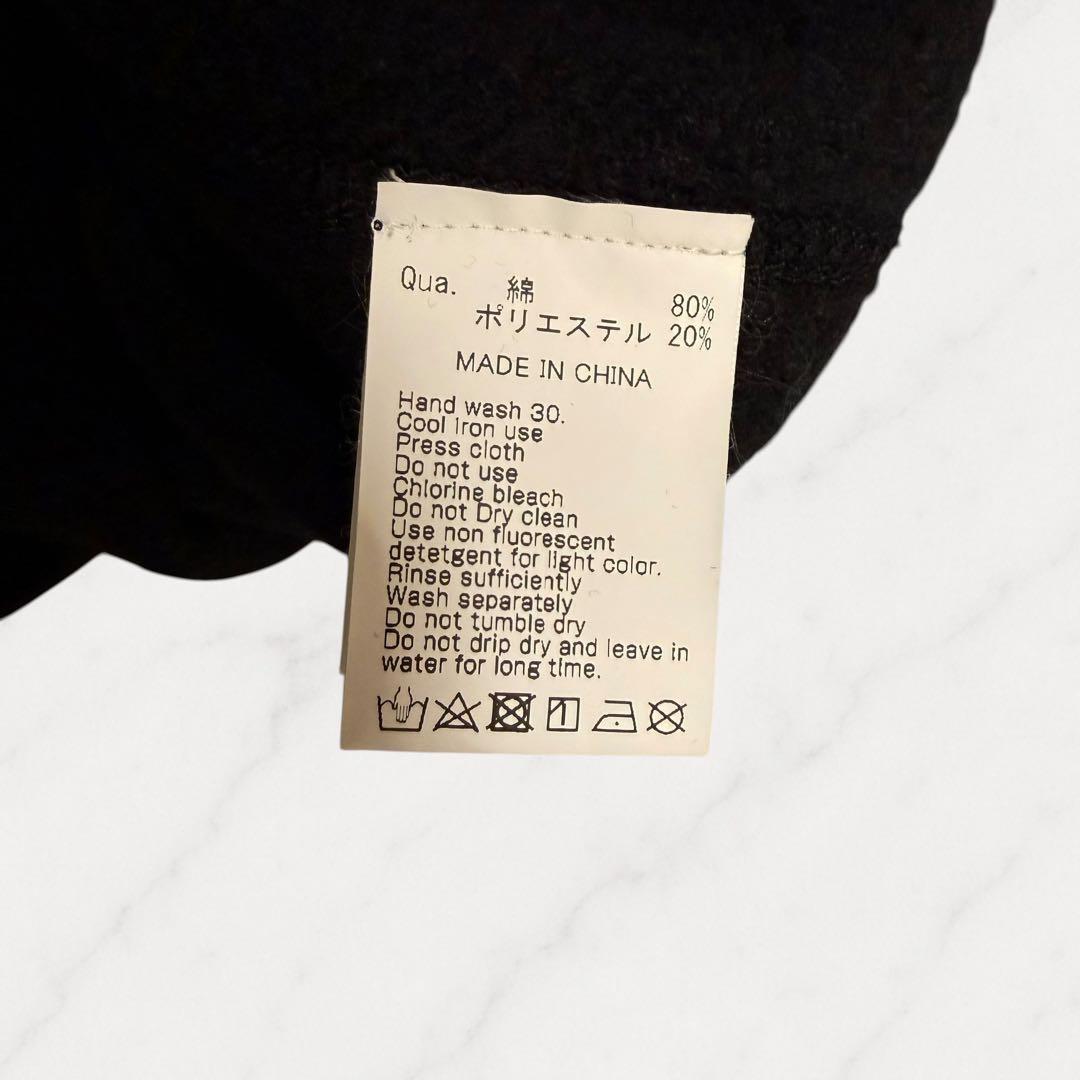 Qua. 綿 80%
ポリエステル 20%
MADE IN CHINA
Hand wash 30.
Cool iron use
Press cloth
Do not use
Chlorine bleach
Do not Dry clean
Use non fluorescent
detetgent for light color.
Rinse sufficiently
Wash separately
Do not tumble dry
Do not drip dry and leave in
water for long time.